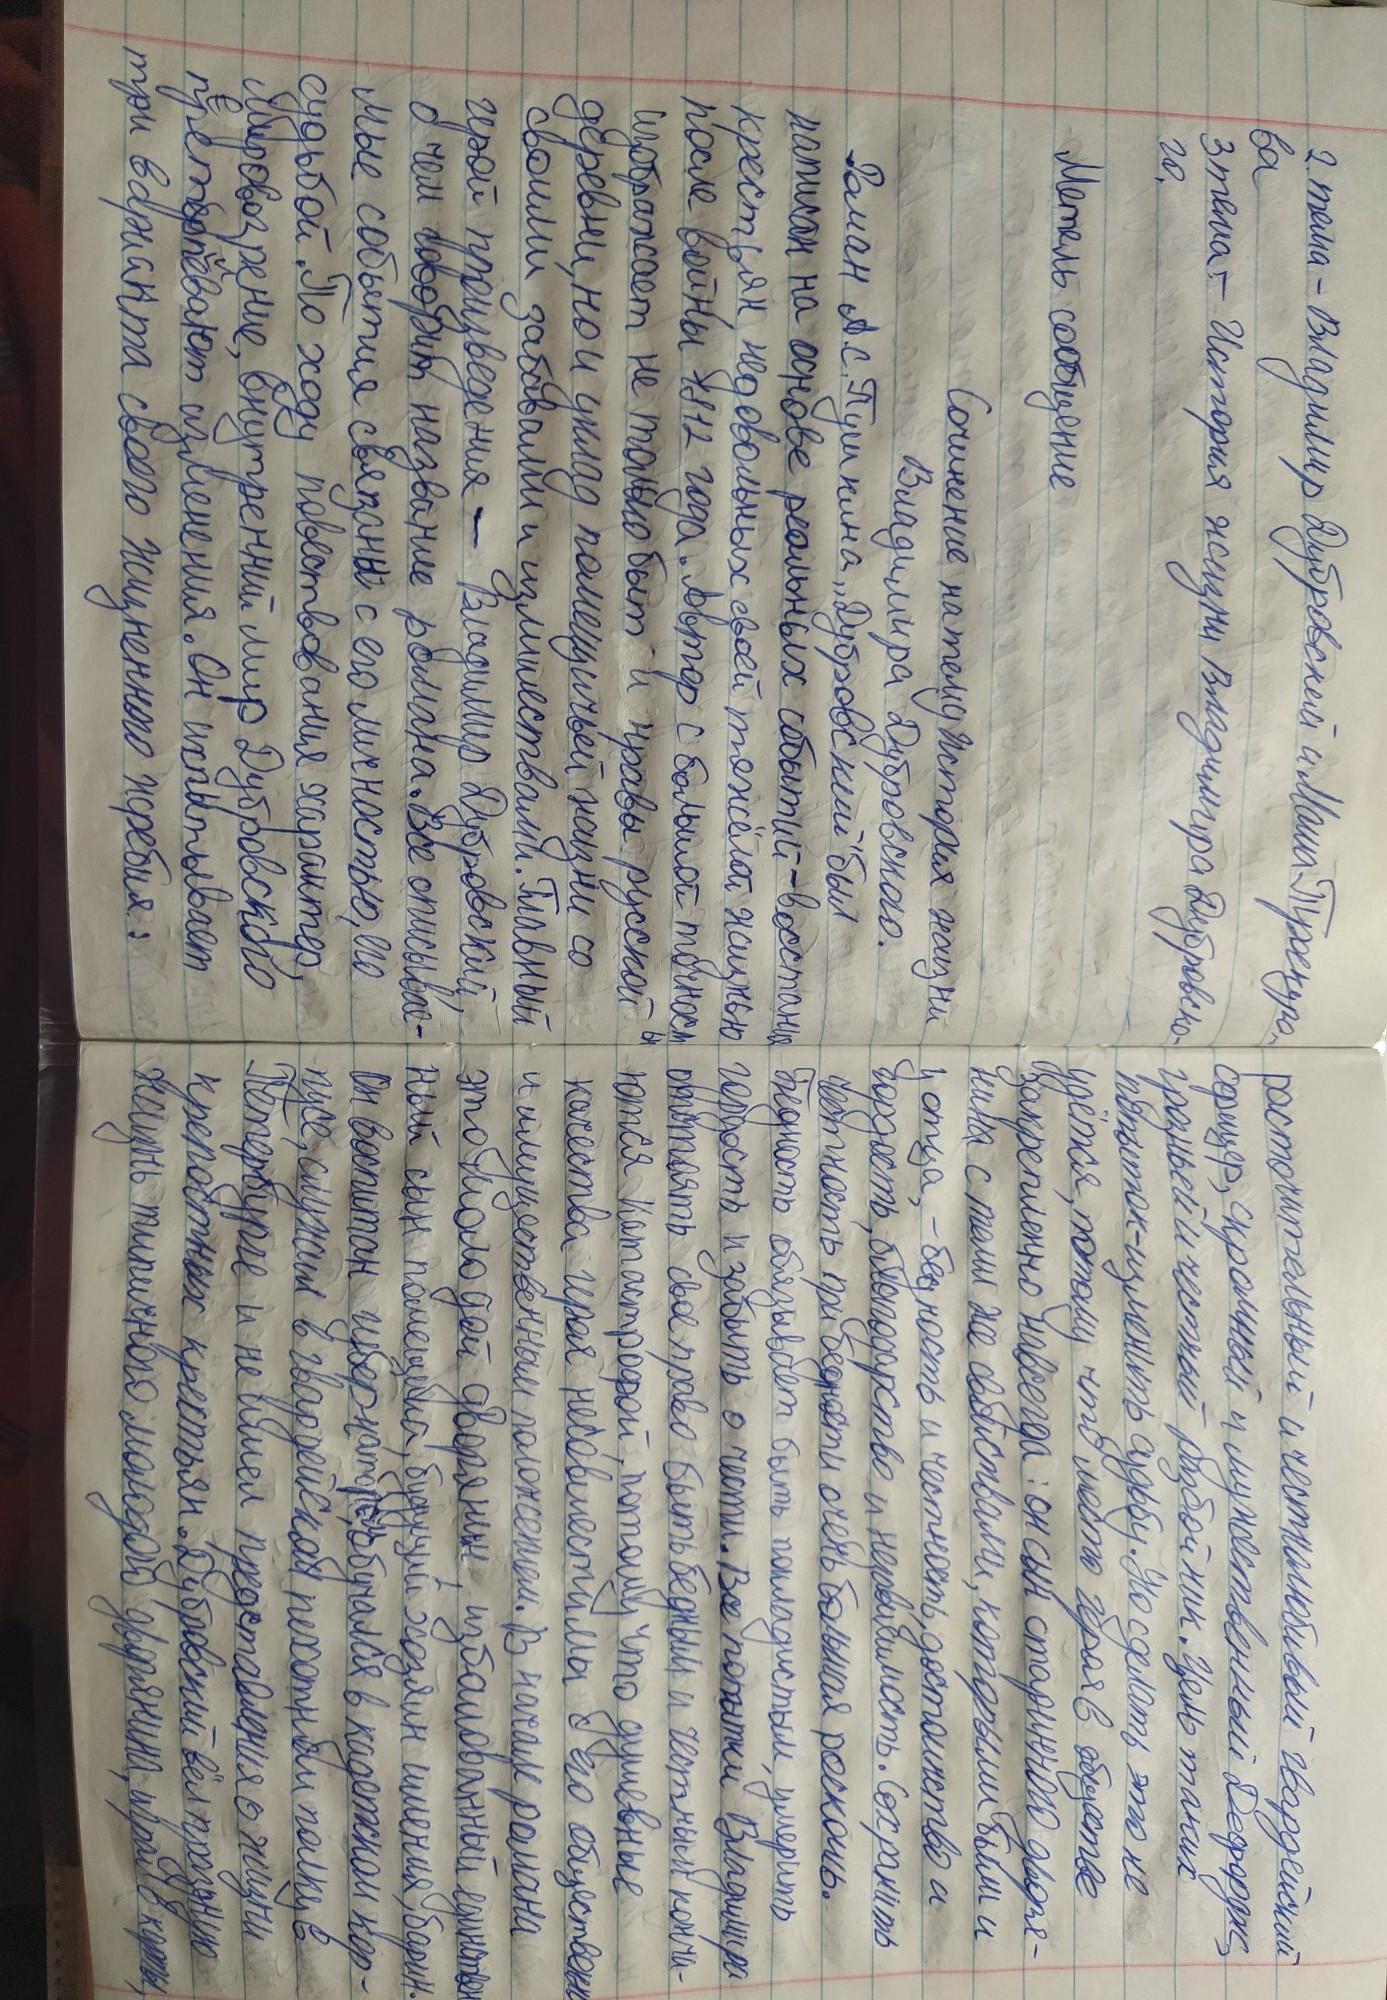 2 тема - Владимир Дубровский и Маша Троекуро-
ва
3 тема - История жизни Владимира Дубровско-
го.
Метель сообщение
Сочинение на тему история жизни
Владимира Дубровского.
Роман А.С. Пушкина „Дубровский" был
написан на основе реальных событий - восстаны
крестьян недовольных своей тяжёлой жизнью
после войны 1812 года. Автор с большой точност
изображает не только быт и нравы русской
деревни, но и уклад помещичьей жизни со
своими забавами и излишествами. Главный
герой произведения - Владимир Дубровский,
о чём говорит название романа. Все описыва-
мые события связаны с его личностью, его
судьбой. По ходу повествования характер,
мировоззрение, внутренний мир Дубровского
претерпевают изменения. Он испытывает
три варианта своего жизненного жребия:
расточительный и честолюбивый гвардейский
офицер, скромный и мужественный Дефорж,
грозный и честный разбойник. Цель таких
попыток - изменить судьбу. Но сделать это не
удётся, потому что место героя в обществе
закреплено навсегда: он сын старинного дворя-
нина с теми же свойствами, которыми были и
у отца, - бедность и честность, достоинство и
гордость, благородство и независимость. Сохранить
честность при бедности очень большая роскошь.
Бедность обязывает быть покладистым, умерить
гордость и забыть о чести. Все попытки Владимира
отстоять свое право быть бедным и честным конча-
ются катастрофой, потому что душевные
качества героя несовместимы с его обществен
и имущественным положением. В начале романа
это молодой дворянин, избалованный единствен
ный сын помещика, будущий хозяин имения, барин.
Он воспитан гувернатором, обучался в кадетском кор-
пусе, служит в гвардейском пехотном полку в
Петербурге и не имел представления о жизни
крепостных крестьян. Дубровский вёл праздную
жизнь типичного молодого дворянина, играл в карты,